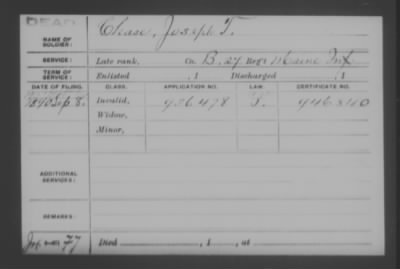 DEAD
NAME OF SOLDIER: Chase, Joseph T.
SERVICE: Late rank, Co. B, 27 Reg't Maine Inf
TERM OF SERVICE: Enlisted , 1 Discharged , 1
DATE OF FILING. CLASS. APPLICATION NO. LAW. CERTIFICATE NO.
1890 Sep 8. Invalid, 926478 946340
Widow,
Minor,
ADDITIONAL SERVICES:
REMARKS:
77 Died , 1 , at